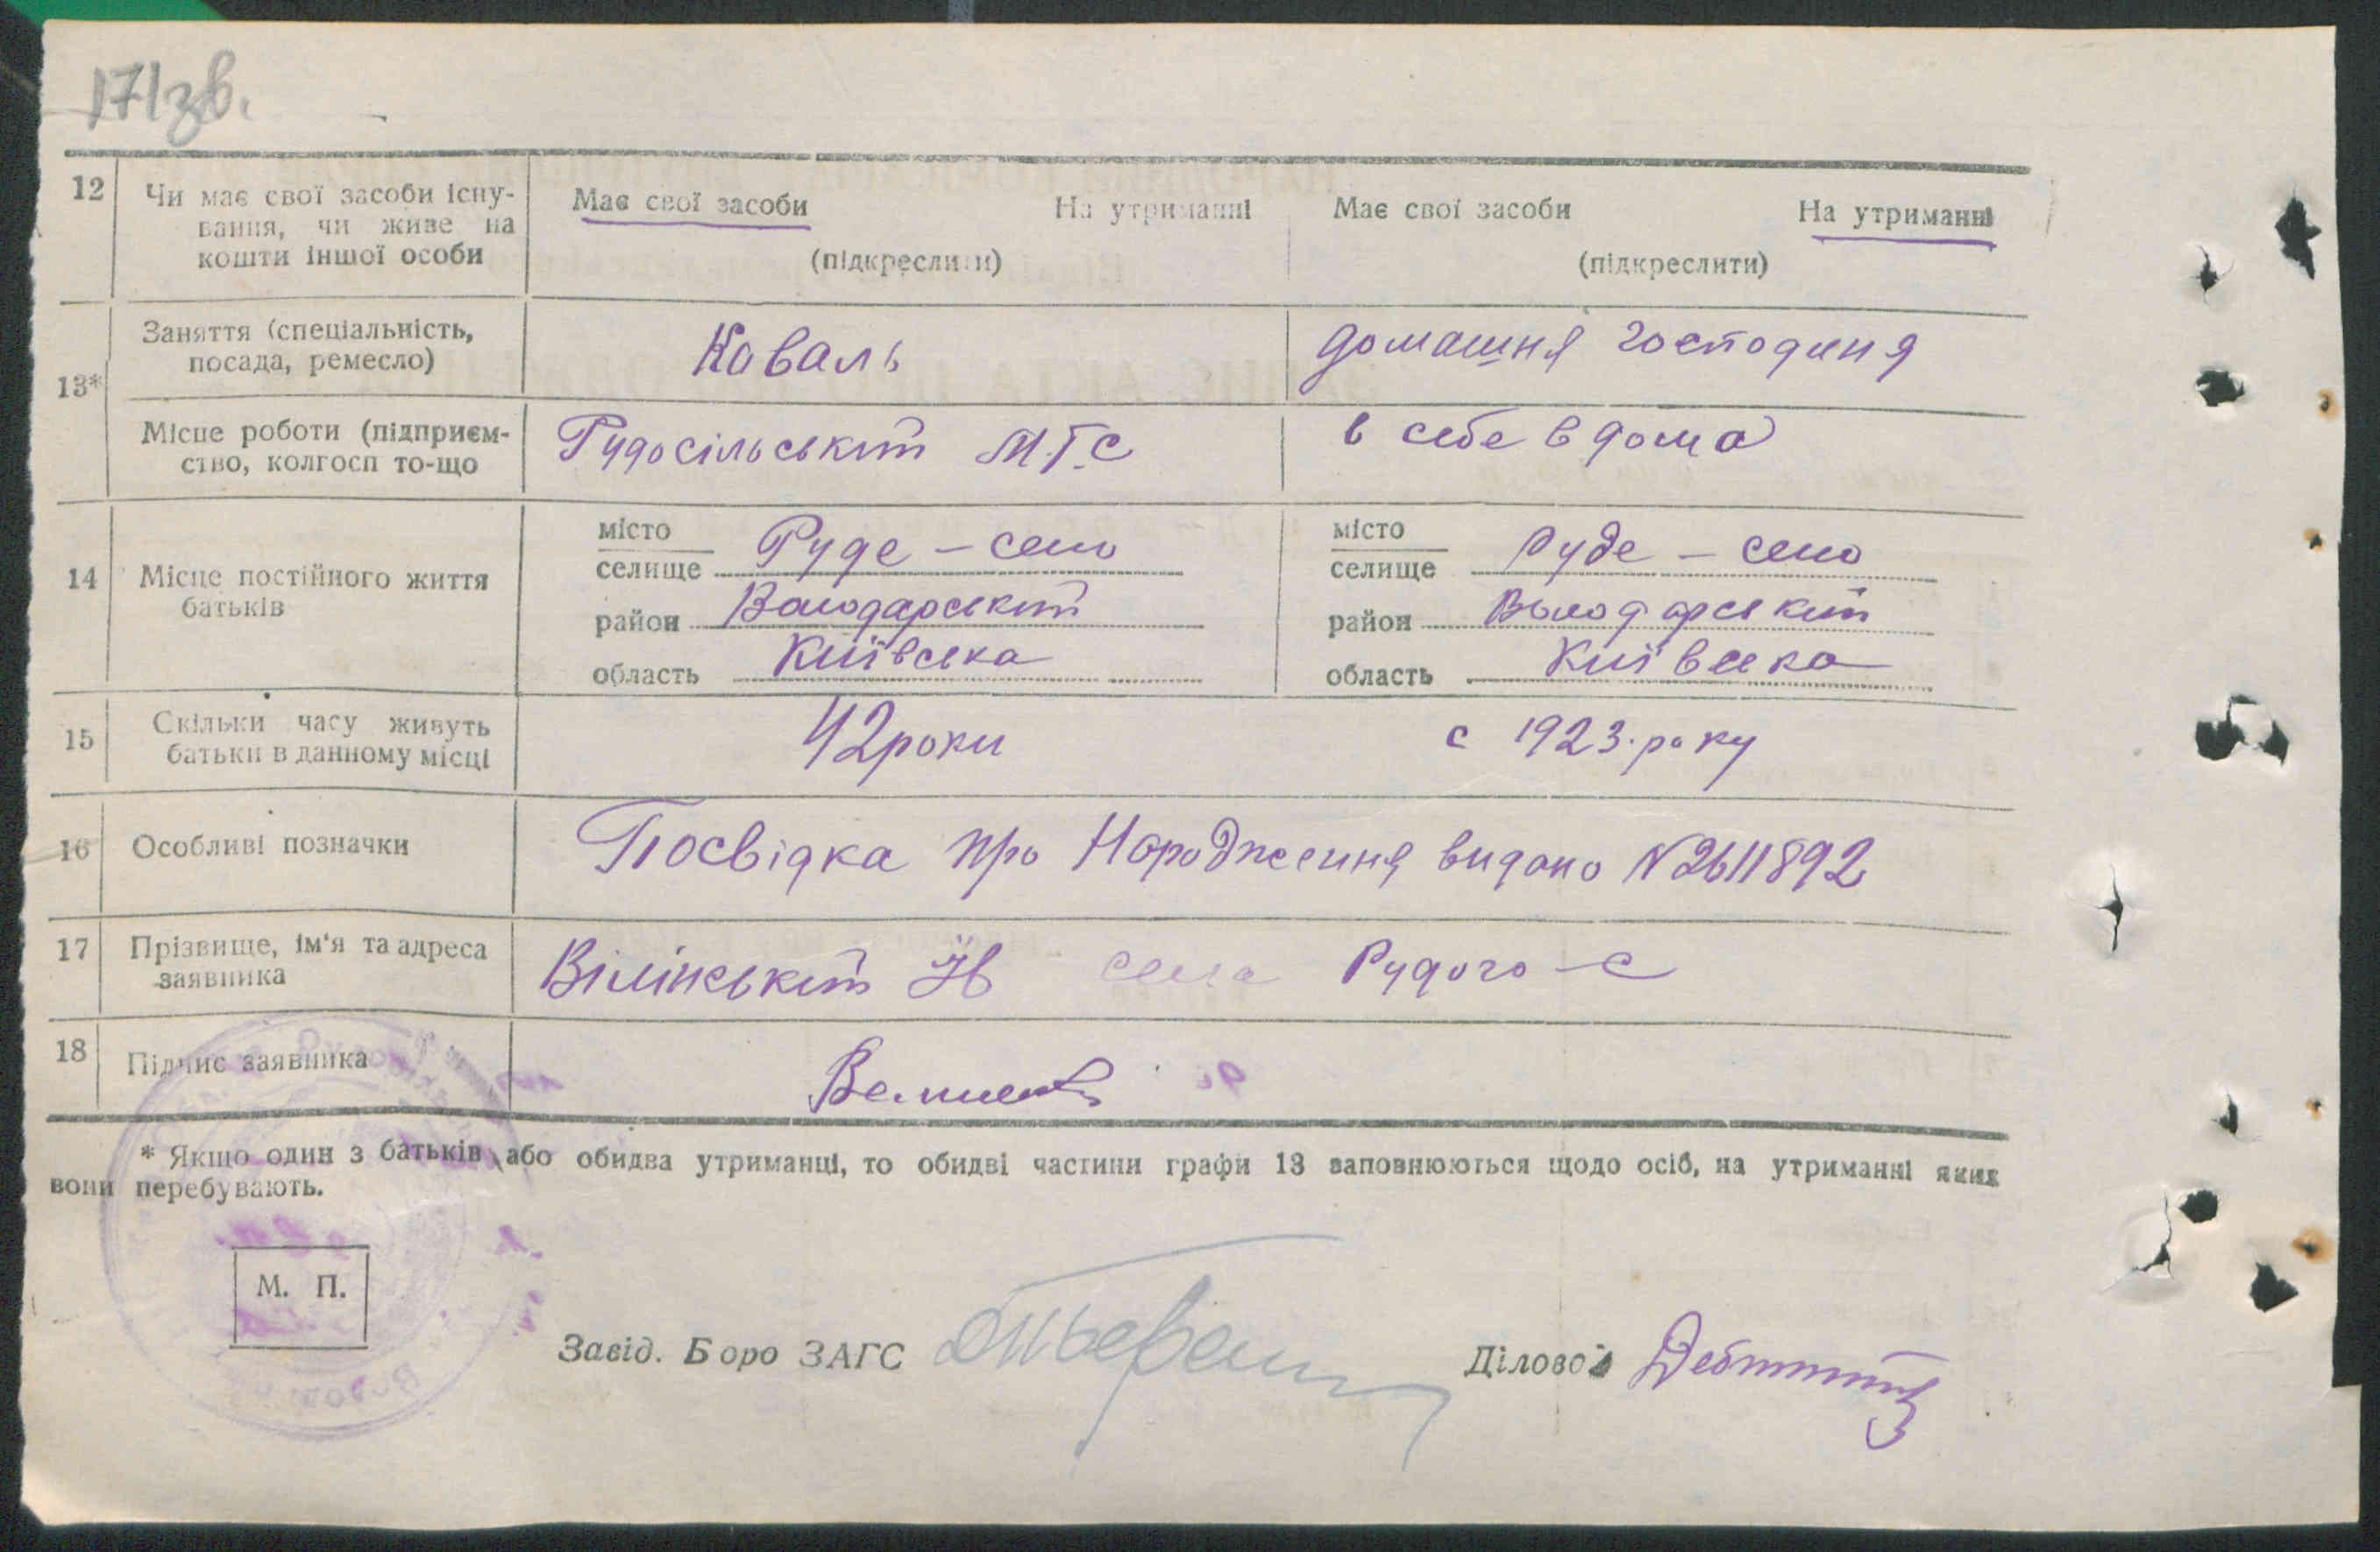 171зв.
12 Чи має свої засоби існу- Має свої засоби На утриманні Має свої засоби На утриманні
вання, чи живе на
кошти іншої особи (підкреслити) (підкреслити)
Заняття (спеціальність, Коваль домашня господиня
посада, ремесло)
13*
Місце роботи (підприєм- Рудосільський М.Т.С в себе в дома
ство, колгосп то-що
місто місто
селище Руде - село селище Руде - село
14 Місце постійного життя
батьків район Володарський район Володарський
область Київська область Київська
15 Скільки часу живуть 42 роки с 1923. року
батьки в данному місці
16 Особливі позначки Посвідка про Народження видано N 2611892
17 Прізвище, ім'я та адреса Вілінський Ів села Рудого - С
заявника
18 Підпис заявника
* Якщо один з батьків або обидва утриманці, то обидві частини графи 13 заповнюються щодо осіб, на утриманні яких
вони перебувають.
М. П.
Завід. Бюро ЗАГС Діловод